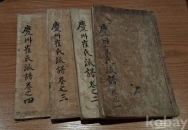 慶州崔氏派譜卷之四
慶州崔氏派譜卷之三
慶州崔氏派譜卷之二
慶州崔氏派譜
kobay